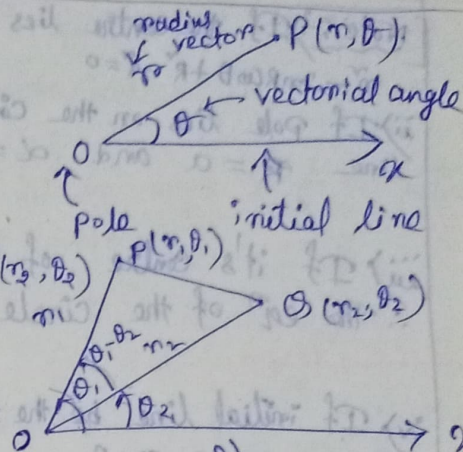 radius
vector
r
P(r, θ)
θ
vectorial angle
O
x
Pole
initial line
(r₂, θ₂)
P(r₁, θ₁)
r₁
Q(r₂, θ₂)
θ₁-θ₂
r₂
θ₁
θ₂
O